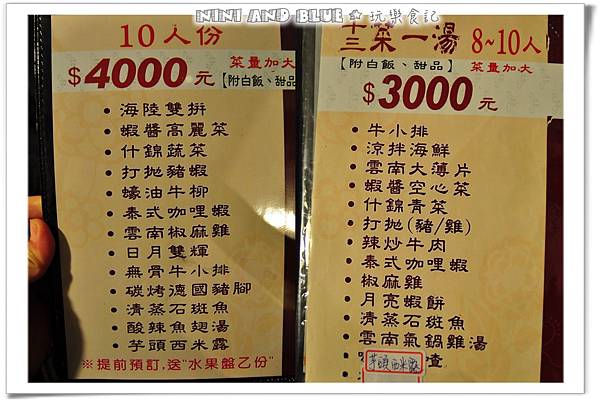 NINI AND BLUE ☆ 玩樂食記
10人份
菜量加大
$4000元
【附白飯、甜品
• 海陸雙拼
• 蝦醬高麗菜
• 什錦蔬菜
• 打拋豬蝦
• 蠔油牛柳
• 泰式咖哩蝦
• 雲南椒麻雞
• 日月雙輝
• 無骨牛小排
• 碳烤德國豬腳
• 清蒸石斑魚
• 酸辣魚翅湯
• 芋頭西米露
※提前預訂,送"水果盤乙份"
十三菜一湯 8~10人
【附白飯、甜品】 菜量加大
$3000元
• 牛小排
• 涼拌海鮮
• 雲南大薄片
• 蝦醬空心菜
• 什錦青菜
• 打拋(豬/雞)
• 辣炒牛肉
• 泰式咖哩蝦
• 椒麻雞
• 月亮蝦餅
• 清蒸石斑魚
• 雲南氣鍋雞湯
渣
芋頭西米露